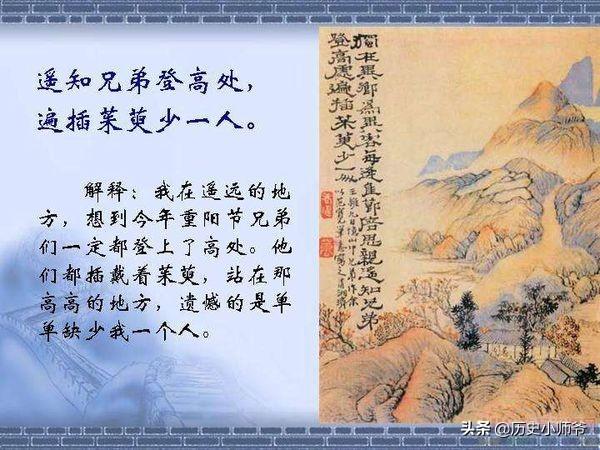 遥知兄弟登高处，
遍插茱萸少一人。
解释：我在遥远的地
方，想到今年重阳节兄弟
们一定都登上了高处。他
们都插戴着茱萸，站在那
高高的地方，遗憾的是单
单缺少我一个人。
獨在異鄉為異客每逢佳節倍思親遙知兄弟
登高處遍插茱萸少一人
头条 @历史小师爷